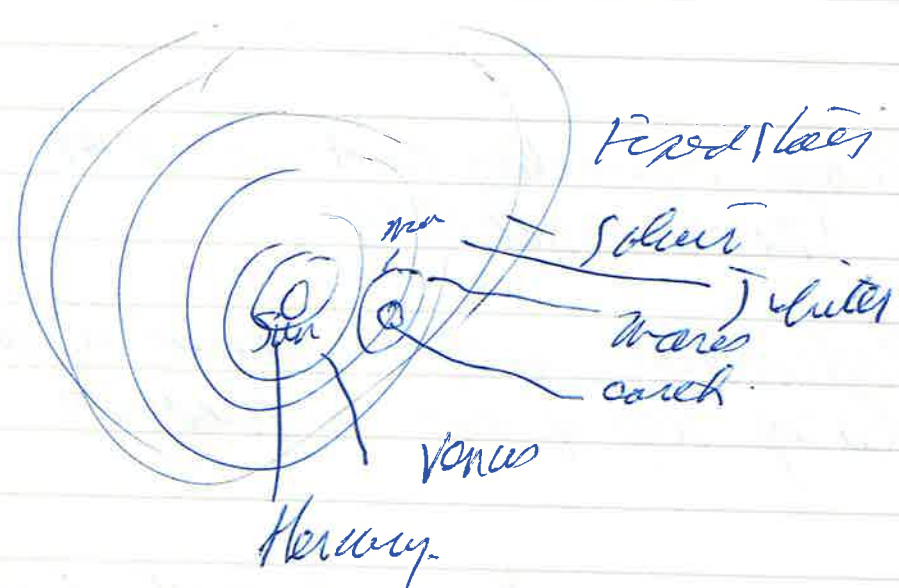 Fixed stars
Moon
Saturn
Jupiter
Sun
Mars
earth.
Venus
Mercury.